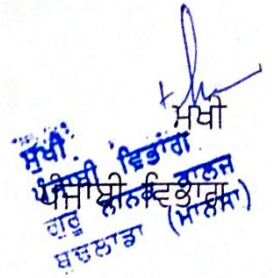 ਮੁਖੀ
ਪੰਜਾਬੀ ਵਿਭਾਗ
ਮੁਖੀ
ਪੰਜਾਬੀ ਵਿਭਾਗ
ਗੁਰੂ ਨਾਨਕ ਕਾਲਜ
ਬੁਢਲਾਡਾ (ਮਾਨਸਾ)